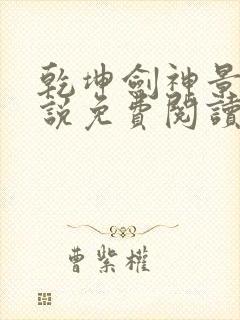 乾坤劍神景
說免費閱讀
曹紫權